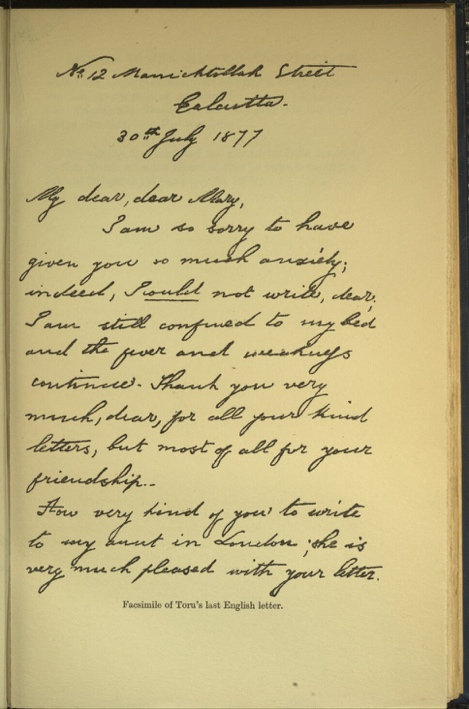 No. 12 Manicktollah Street
Calcutta.
30th July 1877
My dear, dear Mary,
I am so sorry to have
given you so much anxiety;
indeed, I could not write, dear;
I am still confined to my bed
and the fever and weakness
continue. Thank you very
much, dear, for all your kind
letters, but most of all for your
friendship.-
How very kind of you to write
to my aunt in London; she is
very much pleased with your letter.
Facsimile of Toru's last English letter.